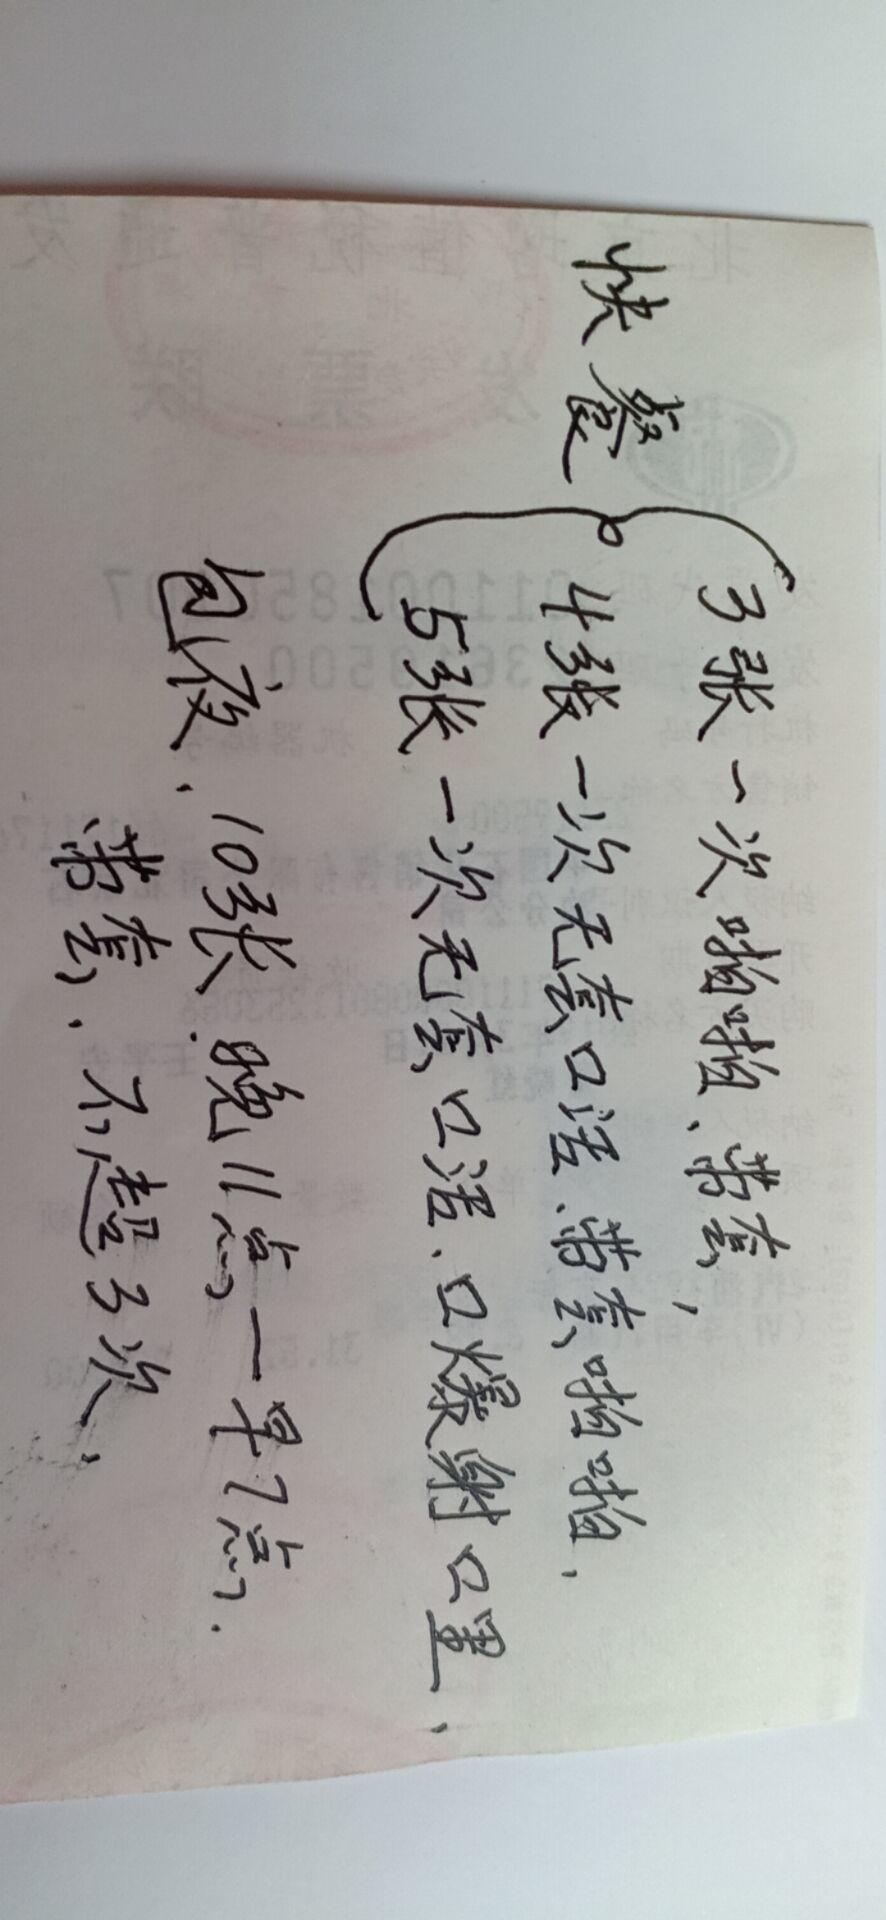 快餐
3张一次啪啪、带套,
4张一次无套口活、带套啪啪,
5张一次无套口活、口爆射口里,
包夜、10张.晚11点—早7点.
带套、不超3次、